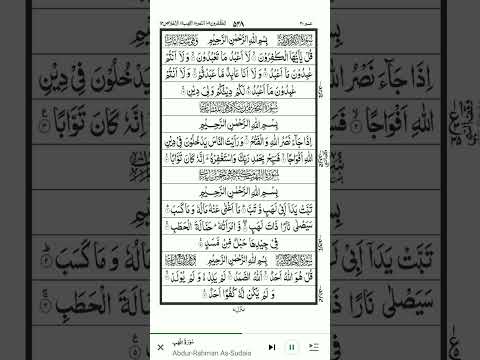 عم ٣٠
٥٤٨
بِسْمِ اللهِ الرَّحْمٰنِ الرَّحِيْمِ
قُلْ يٰٓاَيُّهَا الْكٰفِرُوْنَ ۙ لَآ اَعْبُدُ مَا تَعْبُدُوْنَ ۙ وَلَآ اَنْتُمْ
عٰبِدُوْنَ مَآ اَعْبُدُ ۚ وَلَآ اَنَا عَابِدٌ مَّا عَبَدْتُّمْ ۙ وَلَآ اَنْتُمْ
عٰبِدُوْنَ مَآ اَعْبُدُ ۗ لَكُمْ دِيْنُكُمْ وَلِيَ دِيْنِ
بِسْمِ اللهِ الرَّحْمٰنِ الرَّحِيْمِ
اِذَا جَآءَ نَصْرُ اللهِ وَالْفَتْحُ ۙ وَرَاَيْتَ النَّاسَ يَدْخُلُوْنَ فِيْ دِيْنِ
اللهِ اَفْوَاجًا ۙ فَسَبِّحْ بِحَمْدِ رَبِّكَ وَاسْتَغْفِرْهُ ؔ اِنَّهٗ كَانَ تَوَّابًا
بِسْمِ اللهِ الرَّحْمٰنِ الرَّحِيْمِ
تَبَّتْ يَدَآ اَبِيْ لَهَبٍ وَّتَبَّ ۗ مَآ اَغْنٰى عَنْهُ مَالُهٗ وَمَا كَسَبَ ۗ
سَيَصْلٰى نَارًا ذَاتَ لَهَبٍ ۙ وَّامْرَاَتُهٗ ۗ حَمَّالَةَ الْحَطَبِ ۚ
فِيْ جِيْدِهَا حَبْلٌ مِّنْ مَّسَدٍ
بِسْمِ اللهِ الرَّحْمٰنِ الرَّحِيْمِ
قُلْ هُوَ اللهُ اَحَدٌ ۚ اَللهُ الصَّمَدُ ۚ لَمْ يَلِدْ ۙ وَلَمْ يُوْلَدْ ۙ
وَلَمْ يَكُنْ لَّهٗ كُفُوًا اَحَدٌ
سُورَةُ اللَّهَبِ
Abdur-Rahman As-Sudais